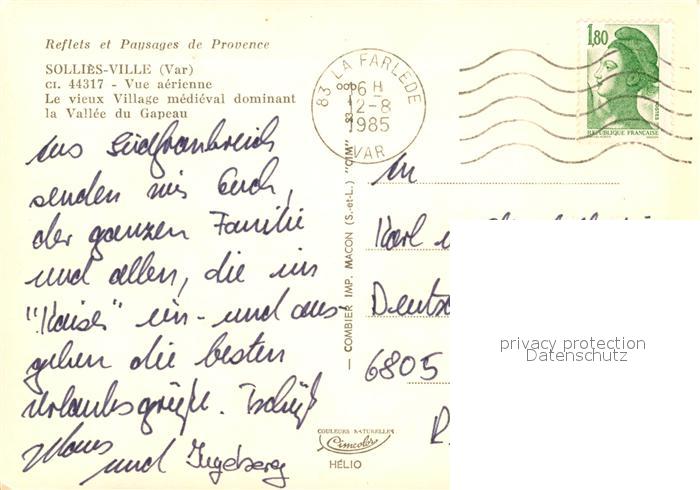 Reflets et Paysages de Provence
SOLLIÈS-VILLE (Var)
CI. 44317 - Vue aérienne
Le vieux Village médiéval dominant
la Vallée du Gapeau
aus Südfrankreich
senden wir Euch,
der ganzen Familie
und allen, die im
"Kaiser" ein- und aus-
gehen die besten
Urlaubsgrüße. Tschüß
Klaus
und Ingeborg
— COMBIER IMP. MACON (S.-et-L.) "CIM"
83 LA FARLEDE
16 H
12-8
1985
VAR
1,80
REPUBLIQUE FRANÇAISE
An
Karl
Deutsc
6805
R.
privacy protection
Datenschutz
COULEURS NATURELLES
Cimcolor
HÉLIO